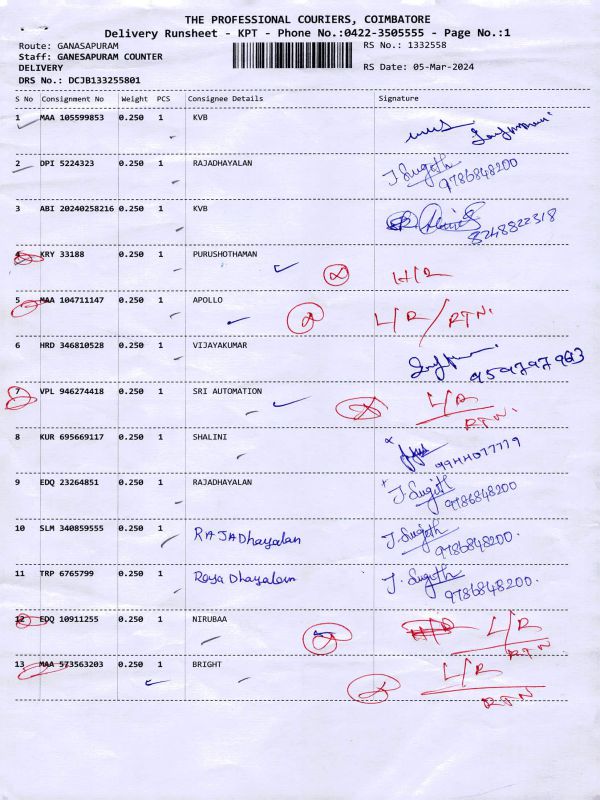 THE PROFESSIONAL COURIERS, COIMBATORE
Delivery Runsheet - KPT - Phone No.:0422-3505555 - Page No.:1
Route: GANASAPURAM RS No.: 1332558
Staff: GANESAPURAM COUNTER
DELIVERY RS Date: 05-Mar-2024
DRS No.: DCJB133255801
S No Consignment No Weight PCS Consignee Details Signature
1 MAA 105599853 0.250 1 KVB
2 DPI 5224323 0.250 1 RAJADHAYALAN J. Sugoth
9786848200
3 ABI 20240258216 0.250 1 KVB
8248822318
4 KRY 33188 0.250 1 PURUSHOTHAMAN H/R
5 MAA 104711147 0.250 1 APOLLO L/R/RTN.
6 HRD 346810528 0.250 1 VIJAYAKUMAR
959797963
7 VPL 946274418 0.250 1 SRI AUTOMATION L/R
RTN.
8 KUR 695669117 0.250 1 SHALINI
9944077779
9 EDQ 23264851 0.250 1 RAJADHAYALAN J. Sugoth
9786848200
10 SLM 340859555 0.250 1 RAJADhayalan J. Sugoth
9786848200.
11 TRP 6765799 0.250 1 Raya Dhayalan J. Sugoth
9786848200.
12 EDQ 10911255 0.250 1 NIRUBAA L/R
RTN
13 MAA 573563203 0.250 1 BRIGHT L/R
RTN